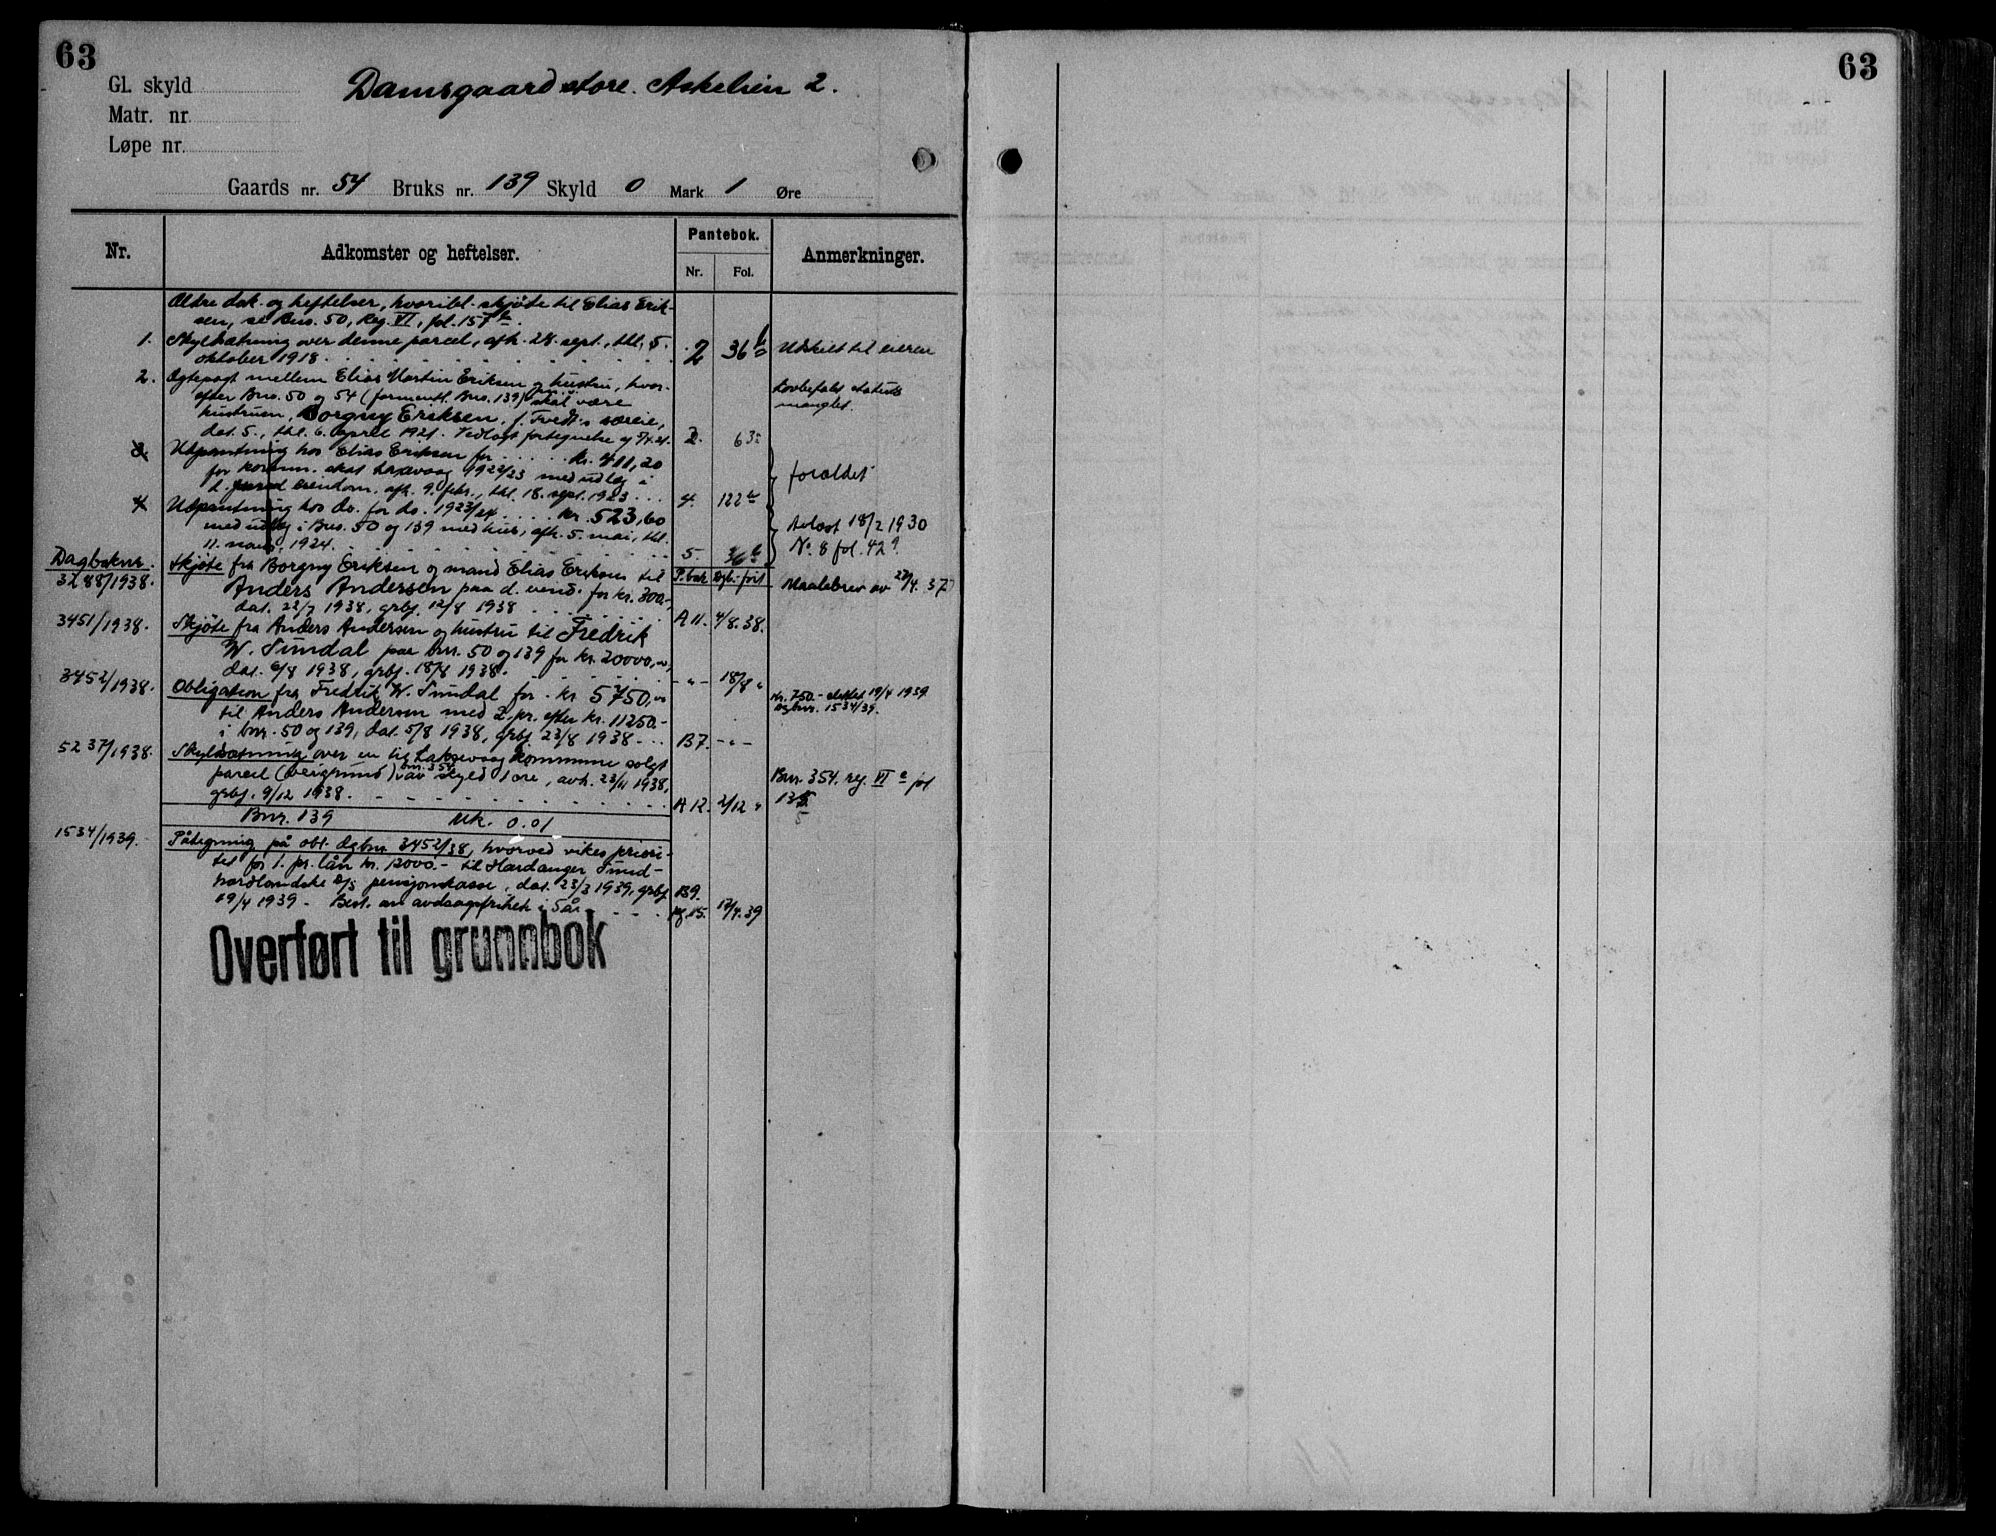 63
63
Gl. skyld
Damsgaard store. Askelien 2.
Matr. nr.
Løpe nr.
Gaards nr. 54 Bruks nr. 139 Skyld 0 Mark 1 Øre
Nr.
Adkomster og heftelser.
Pantebok.
Nr. Fol.
Anmerkninger.
Ældre dok. og heftelser, hvoribl. skjøte til Elias Erik-
sen, se Bno. 50, Reg. VI, fol. 157
1. Skyldsætning over denne parcel, afh. 28. sept., thl. 5. 2 36 Utskilt til eieren
oktober 1918.
2. Ægtepagt mellem Elias Martin Eriksen og hustru, hvor- Lovbefalt statuts
efter Bno. 50 og 54 (formentl. Bno. 139) skal være mangler.
hustruen, Borgny Eriksen, f. Tvedt's særeie,
dat. 5., thl. 6. april 1921. Vedlagt fortegnelse 2. 63
3. Utpantning hos Elias Eriksen for kr. 411,20
for komm. skat Laxevaag 1922/23 med utlæg i forældet
d. eiendom, afh. 9. febr., thl. 18. sept. 1923 4. 122
4 Utpantning hos do. for do. 1923/24 kr. 523,60
med utlæg i Bno. 50 og 139 med hus, afh. 5. mai, thl. Avlæst 18/2 1930
11. 1924. 5. 36 No. 8 fol. 42
Dagboknr.
3288/1938. Skjøte fra Borgny Eriksen og mand Elias Eriksen til P.bok Dgb.-ført Maalebrev av 27/4. 37
Anders Andersen paa d. eiend. for kr. 300,-
dat. 22/7 1938, grbf. 12/8 1938 A 11. 4/8. 38.
3451/1938. Skjøte fra Anders Andersen og hustru til Fredrik
W. Sundal paa bnr. 50 og 139 for kr. 20000,-
dat. 6/8 1938, grbf. 18/8 1938. -"- 18/8 "
3452/1938. Obligation fra Fredrik W. Sundal for kr. 5750,- Kr. 750.- slettet 19/4 1939
til Anders Andersen med 2. pr. efter kr. 11250.- dgbnr. 1534/39.
i bnr. 50 og 139, dat. 5/8 1938, grbf. 23/8 1938 B7. -"-
5237/1938. Skyldsetning over en til Laksevaag kommune solgt
parcel (veigrund) bnr. 354 av skyld 1 øre, avh. 23/11 1938, Bnr. 354. reg. VI fol
grbf. 9/12 1938. A 12. 2/12 " 135
Bnr. 139 Mk. 0.01
1534/1939. Påtegning på obl. dgbnr 3452/38, hvorved vikes priori-
tet for 1. pr. lån kr. 12000.- til Hardanger Sund-
hordlandske D/S pensjonskasse, dat. 23/3 1939, grbf. B9.
19/4 1939 - Best. om avdragsfrihet i 5 år pg. 15. 17/4. 39
Overført til grunnbok